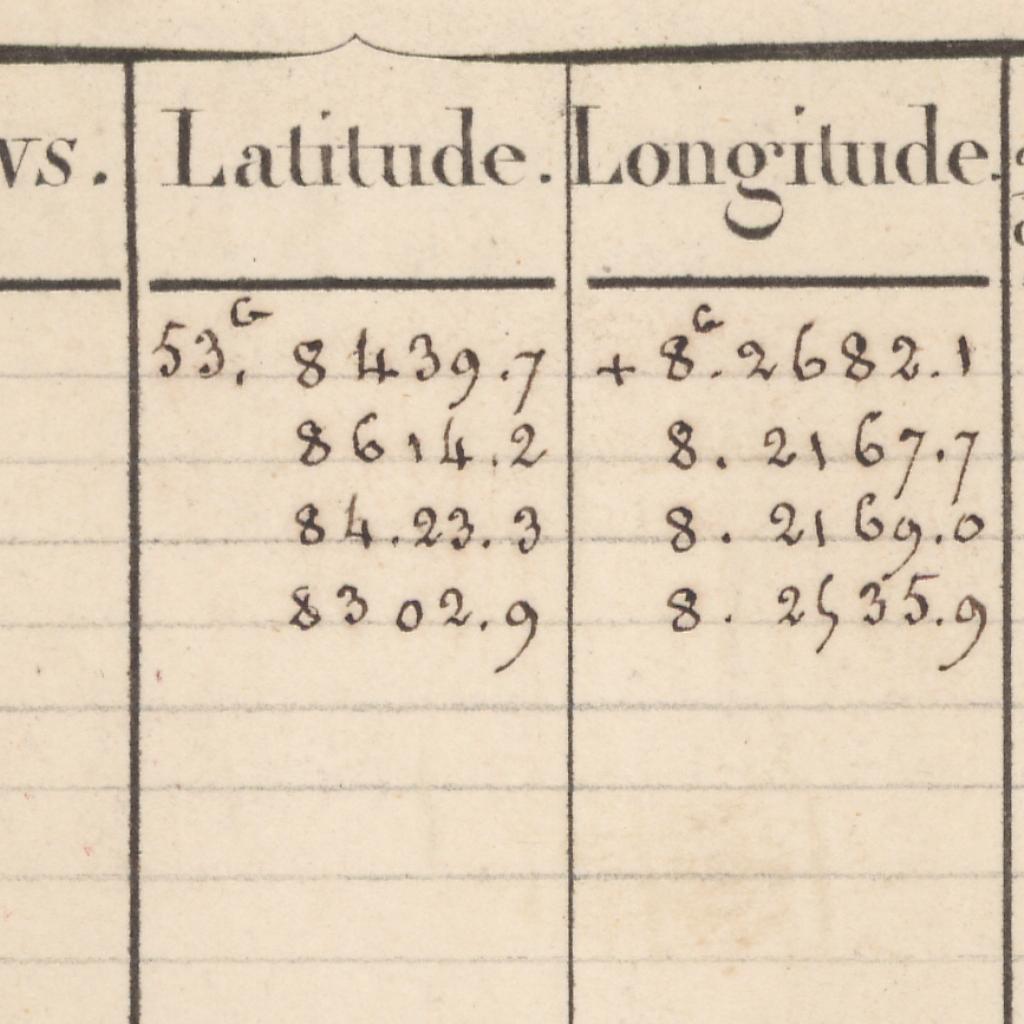 vs. Latitude. Longitude.
53.G 8439.7 + 8G.2682.1
8614.2 8. 2167.7
84.23.3 8. 2169.0
8302.9 8. 2535.9